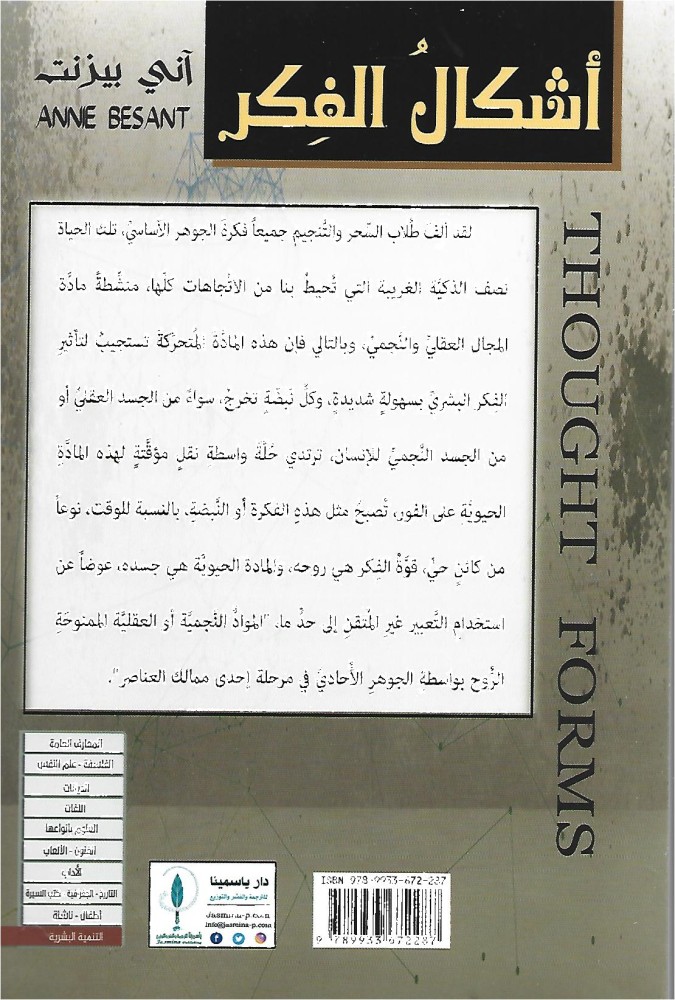 أشكالُ الفِكر
آني بيزنت
ANNIE BESANT
لقد ألفَ طُلاب السِّحر والتَّنجيم جميعاً فكرةَ الجوهر الأساسيِّ، تلك الحياة
نصف الذكيَّة الغريبة التي تُحيطُ بنا من الاتِّجاهات كلِّها، منشِّطةً مادَّة
المجال العقليِّ والنَّجميِّ، وبالتالي فإن هذه المادَّة المُتحرِّكة تستجيبُ لتأثيرِ
الفِكر البشريِّ بسهولةٍ شديدةٍ، وكلُّ نبضَةٍ تخرجُ، سواءً من الجسد العقليِّ أو
من الجسد النَّجميِّ للإنسان، ترتدي حُلَّةَ واسطةِ نقلٍ مؤقَّتةٍ لهذه المادَّةِ
الحيويَّةِ على الفور، تُصبحُ مثل هذهِ الفكرة أو النَّبضَةِ، بالنسبة للوقت، نوعاً
من كائنٍ حيٍّ، قوَّةُ الفِكر هي روحه، والمادة الحيويَّة هي جسده، عوضاً عن
استخدامِ التَّعبير غيرِ المُتقنِ إلى حدٍّ ما، "الموادُّ النَّجميَّة أو العقليَّة الممنوحَةِ
الرُّوح بواسطةِ الجوهرِ الأُحاديِّ في مرحلة إحدى ممالك العناصر".
THOUGHT FORMS
المعارف العامة
الفلسفة - علم النفس
الديانات
اللغات
العلوم بأنواعها
الفنون - الألعاب
الأداب
التاريخ - الجغرافية - كتب السيرة
أطفال - ناشئة
التنمية البشرية
دار ياسمينا
للترجمة والنشر والتوزيع
Jasmina-p.com
info@jasmina-p.com
Jasmina
ISBN 978-9933-672-287
9 789933 672287